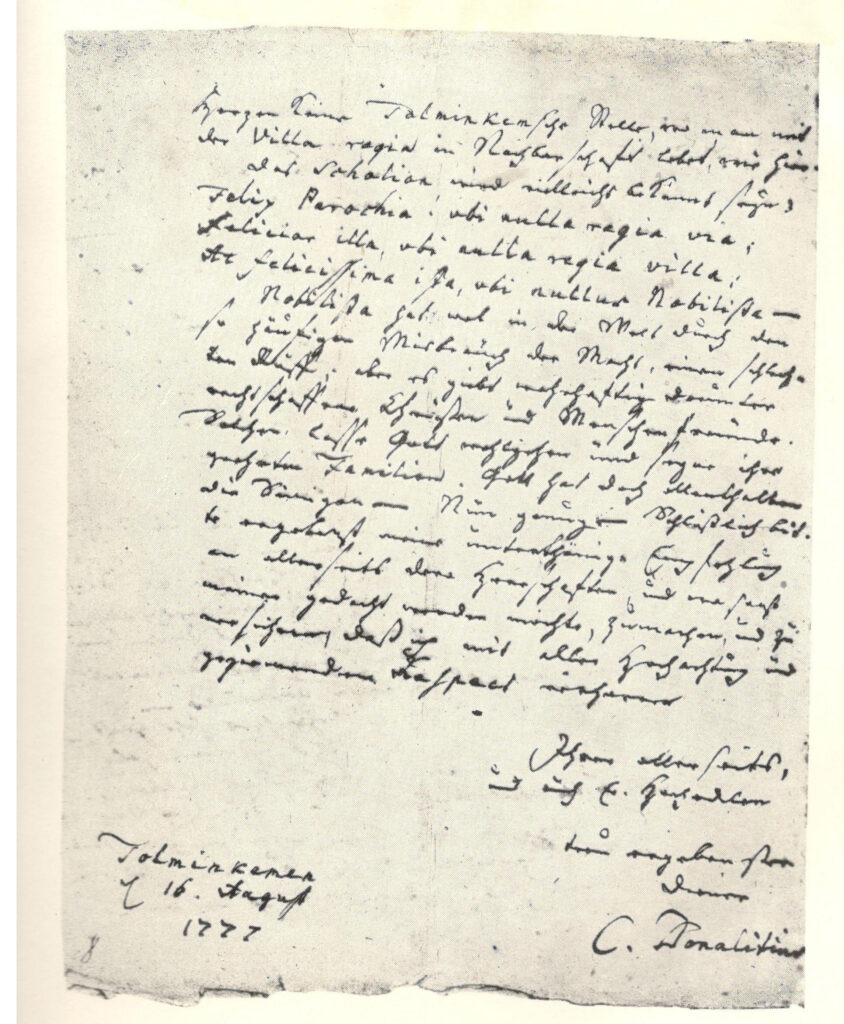 Herzen keine Tolminkemsche Stelle, wo man mit
der Villa regia in Nachbarschaft lebet, wie hier.
Das Scholion wird vielleicht bekannt seyn:
Felix Parochia! ubi nulla regia via;
Felicior illa, ubi nulla regia villa;
At felicissima ista, ubi nullus Nobilista—
Nobilista hat wol in der Welt durch den
so häufigen Misbrauch der Macht, einen schlech-
ten Ruff; aber es giebt wahrhaftig darunter
rechtschaffene Christen und Menschenfreunde.
Solchen lasse Gott und segne ihre
geehrten Familien. Gott hat doch allenthalben
die Seinigen— Nun genug— Schlüßlich bit-
te ergebenst meine unterthänige Empfehlung
an allerseits dero Herrschaften, und wo sonst
meiner gedacht werden möchte, zu machen, und zu
versichern, daß ich mit aller Hochachtung und
geziemendem Respect verharre
Ihrer allerseits,
und auch E. HochEdlen
treu ergebenster
Diener
C. Donalitius
Tolminkemen
d 16. August
1777
8